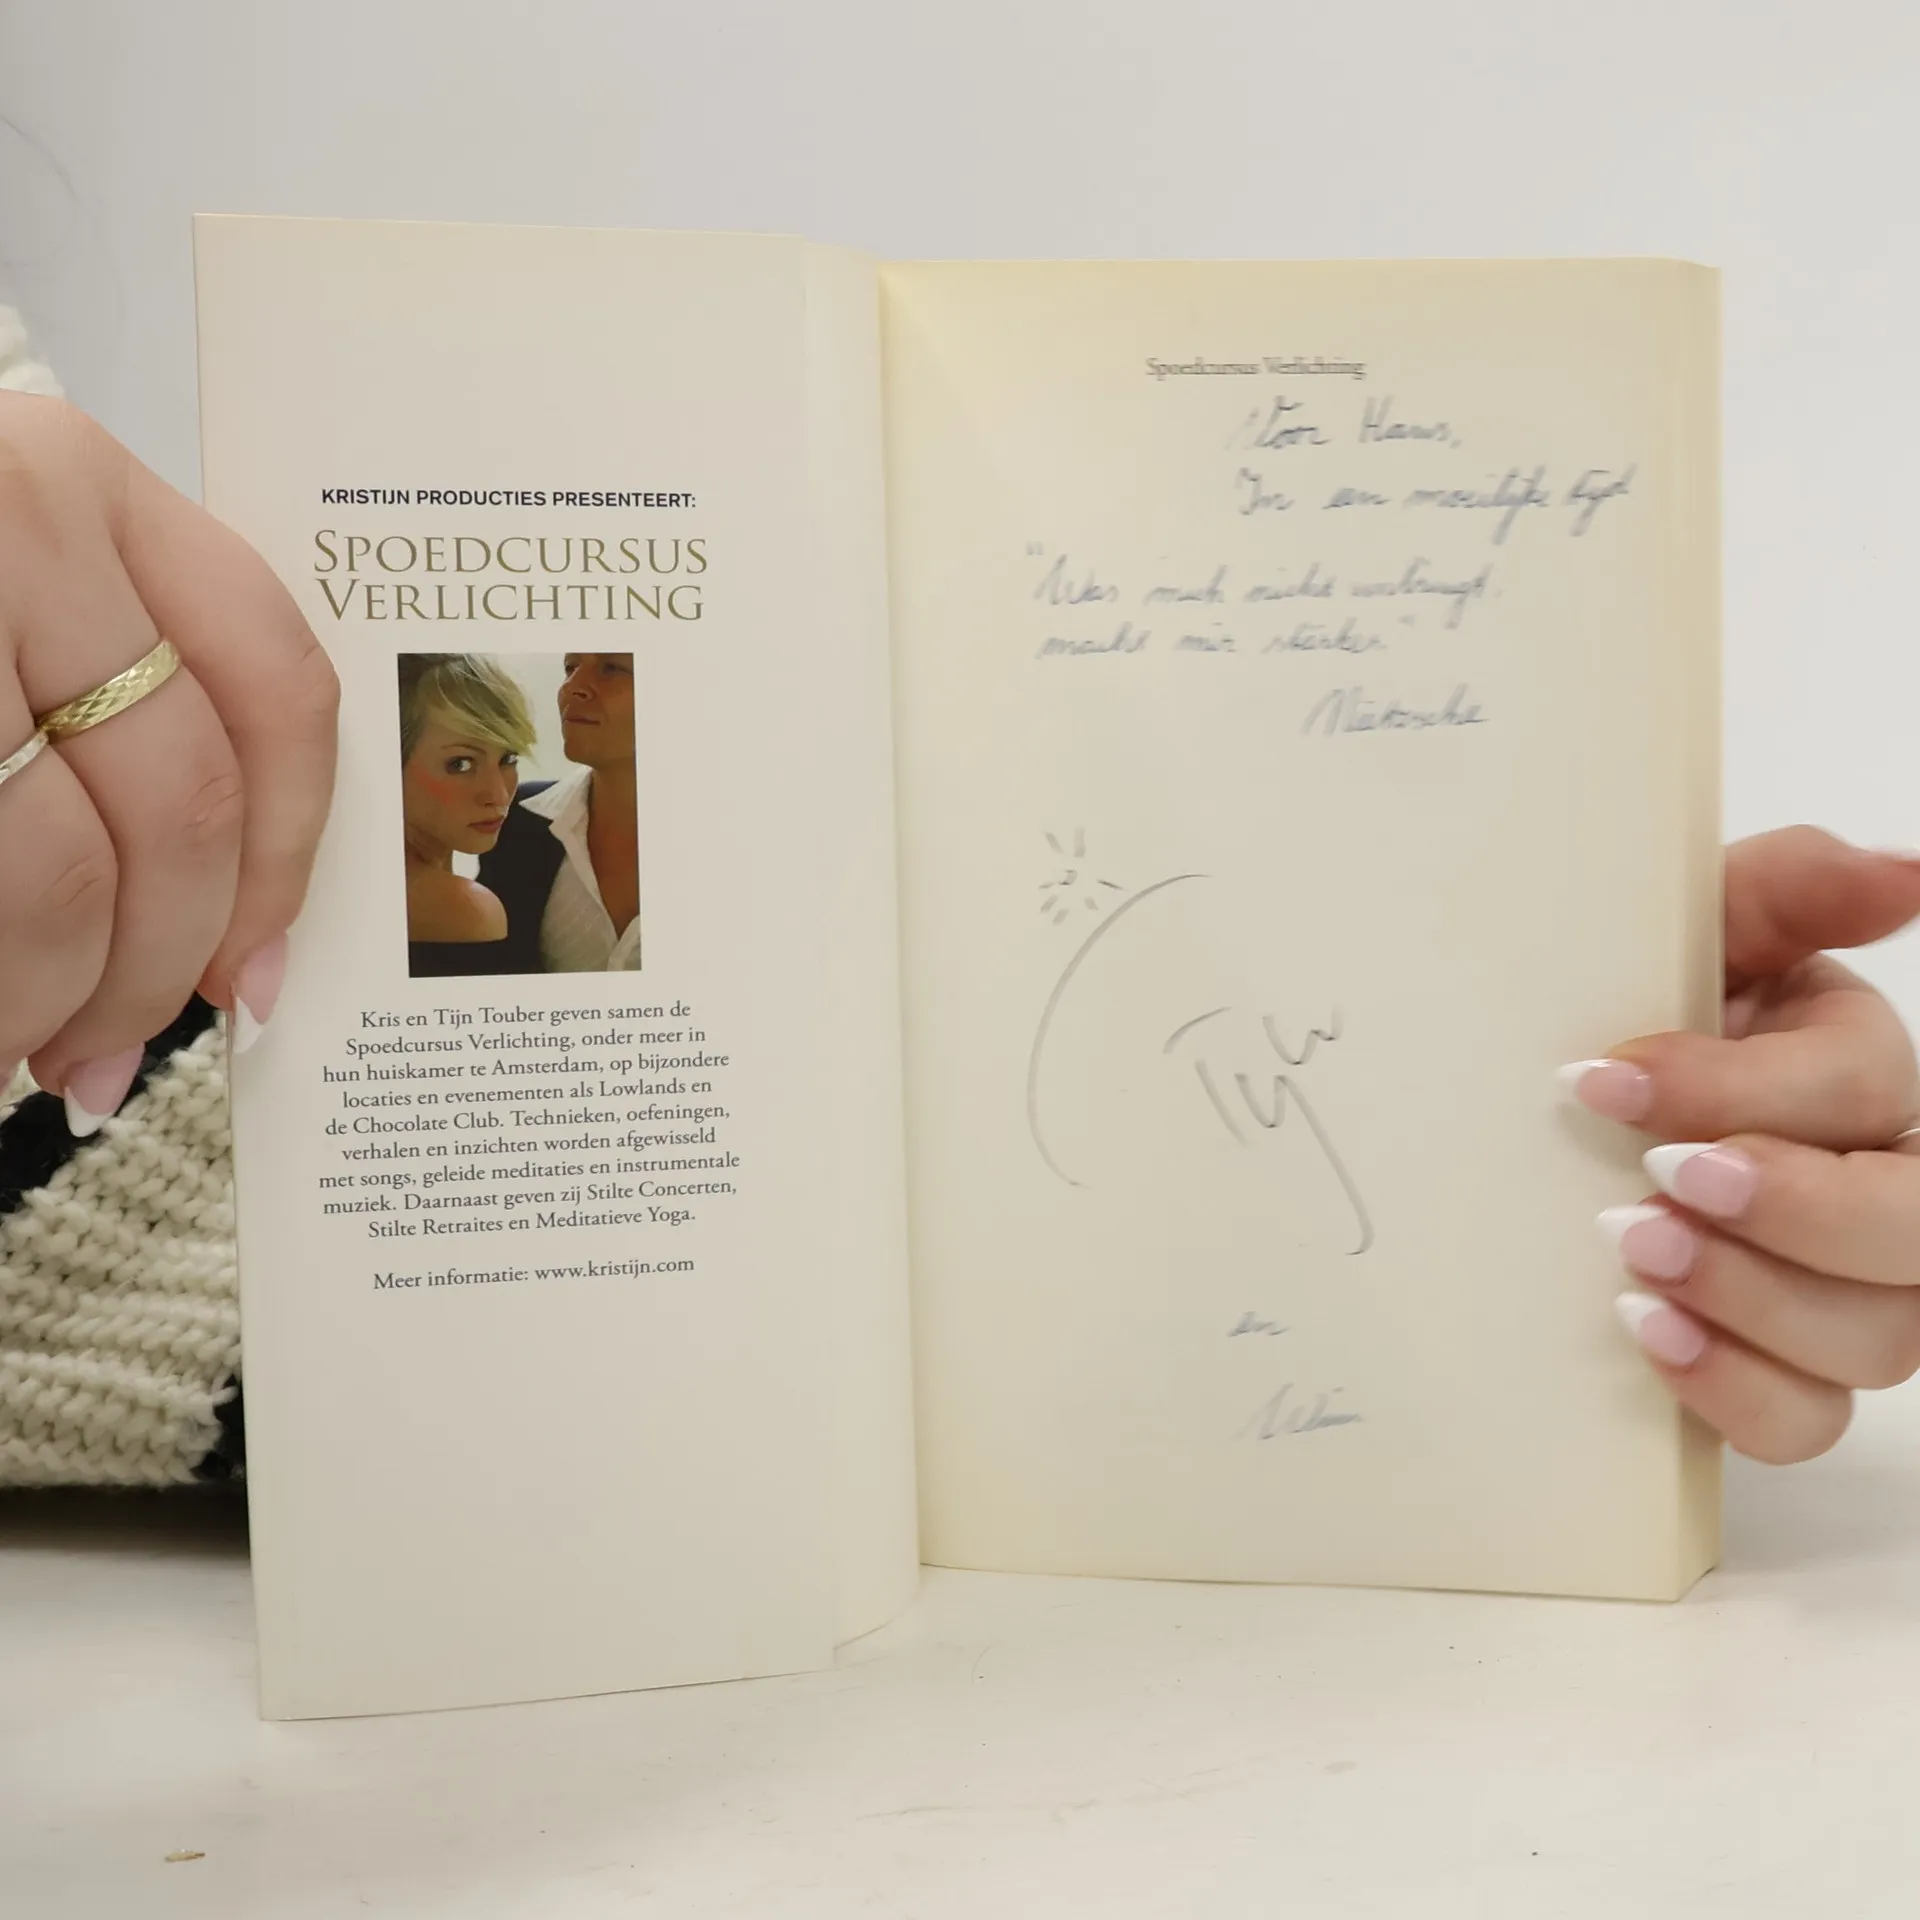 KRISTIJN PRODUCTIES PRESENTEERT:
SPOEDCURSUS
VERLICHTING
Kris en Tijn Touber geven samen de
Spoedcursus Verlichting, onder meer in
hun huiskamer te Amsterdam, op bijzondere
locaties en evenementen als Lowlands en
de Chocolate Club. Technieken, oefeningen,
verhalen en inzichten worden afgewisseld
met songs, geleide meditaties en instrumentale
muziek. Daarnaast geven zij Stilte Concerten,
Stilte Retraites en Meditatieve Yoga.
Meer informatie: www.kristijn.com
Spoedcursus Verlichting
Voor Hans,
In een moeilijke tijd
"Was mich nicht umbringt,
macht mir stärker"
Nietzsche
en